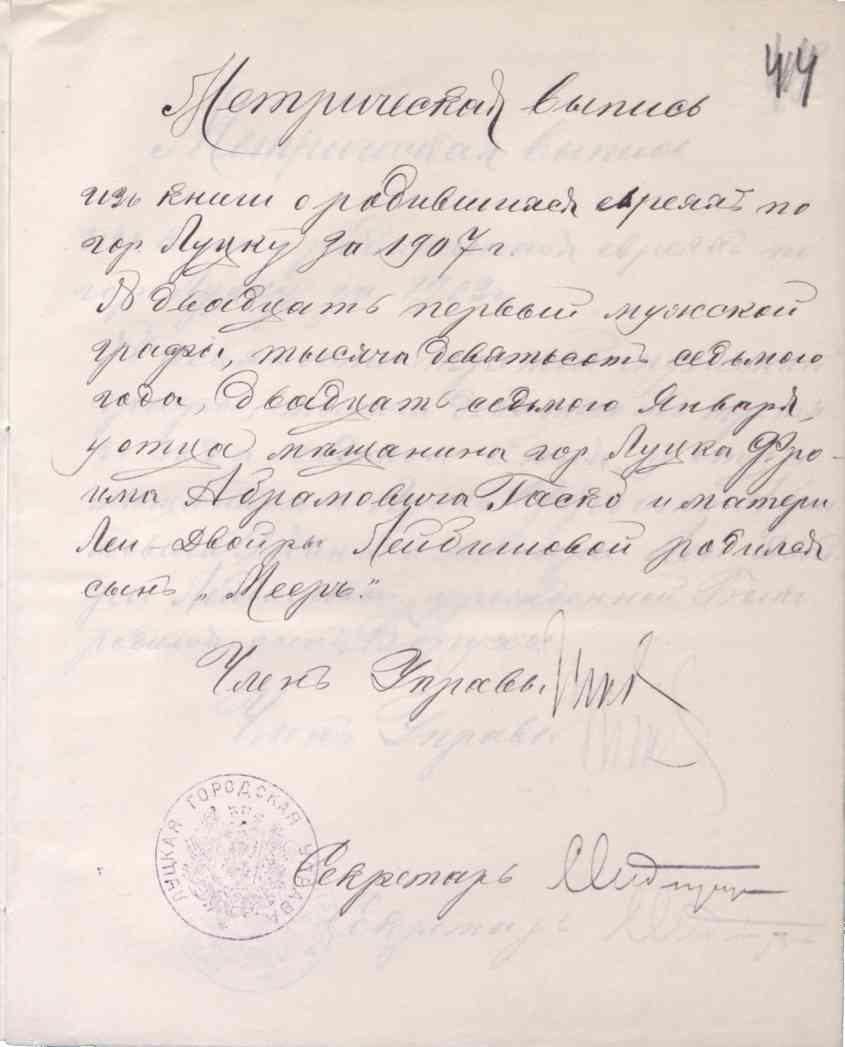 44
Метрическая выпись
изъ книги о родившихся евреяхъ по
гор. Луцку за 1907 г.
№ двадцать первый мужской
графы, тысяча девятьсотъ седьмого
года, двадцать седьмого Января,
у отца мѣщанина гор. Луцка Фро-
има Абрамовича Гаско и матери
Леи-Двойры Лейбишовой родился
сынъ „Мееръ".
Членъ Управы
Секретарь
ЛУЦКАЯ ГОРОДСКАЯ УПРАВА